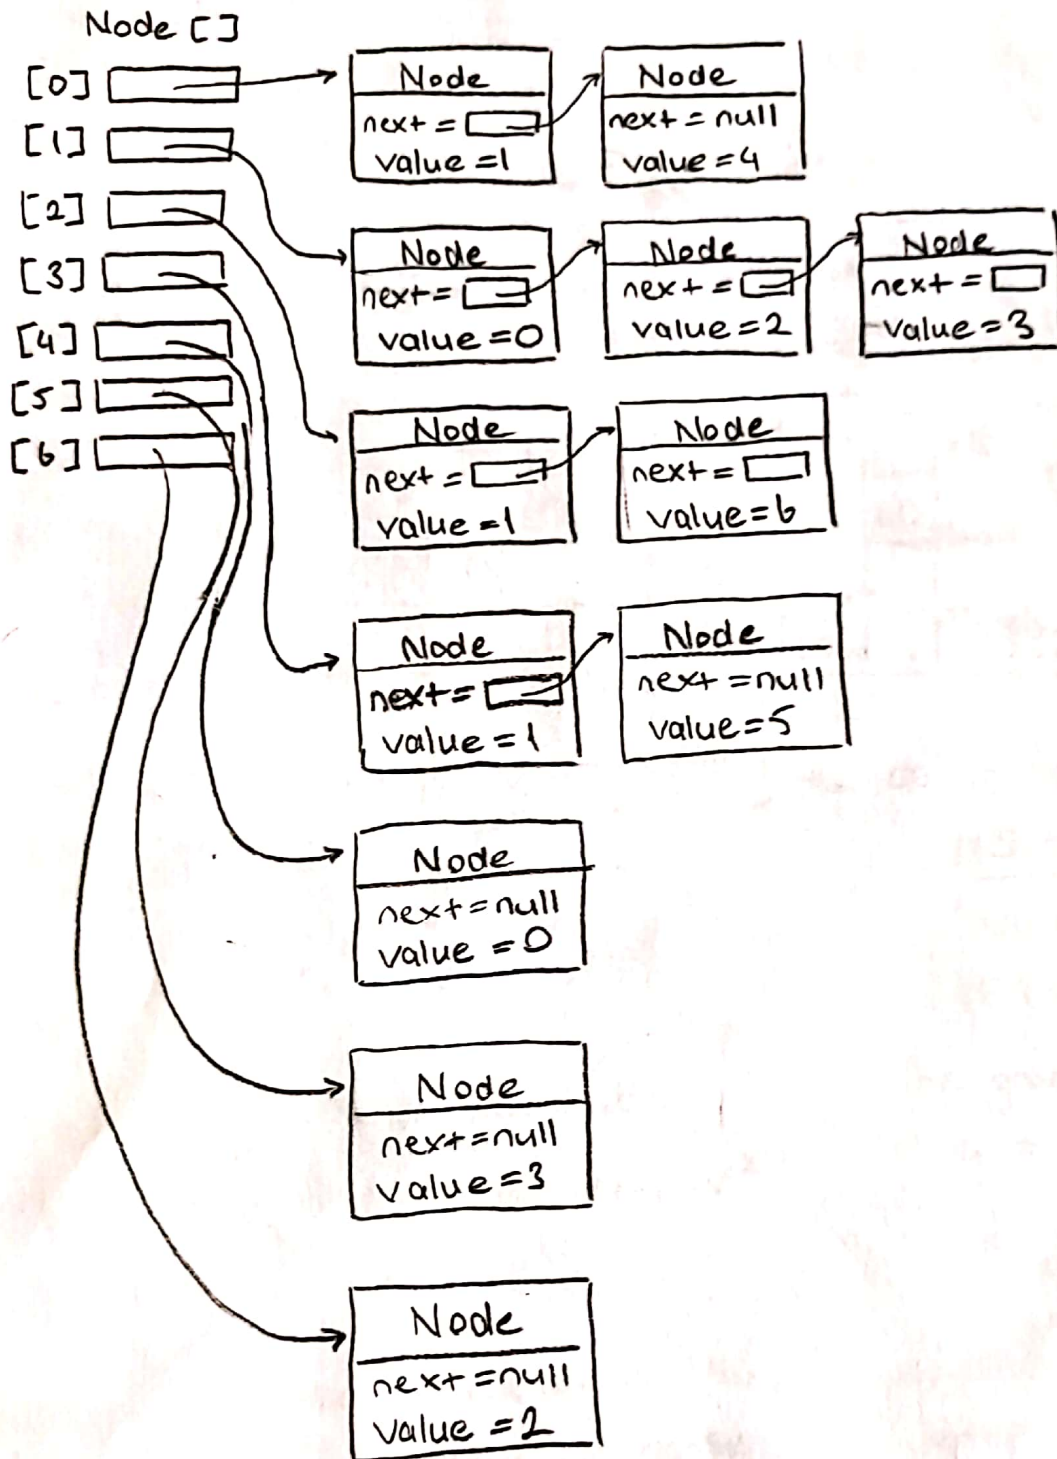 Node []
[0]
[1]
[2]
[3]
[4]
[5]
[6]
Node
next =
value =1
Node
next = null
value = 4
Node
next =
value =0
Node
next =
value =2
Node
next =
value = 3
Node
next =
value =1
Node
next =
value=6
Node
next =
value = 1
Node
next =null
value=5
Node
next=null
value =0
Node
next=null
value =3
Node
next =null
value =2